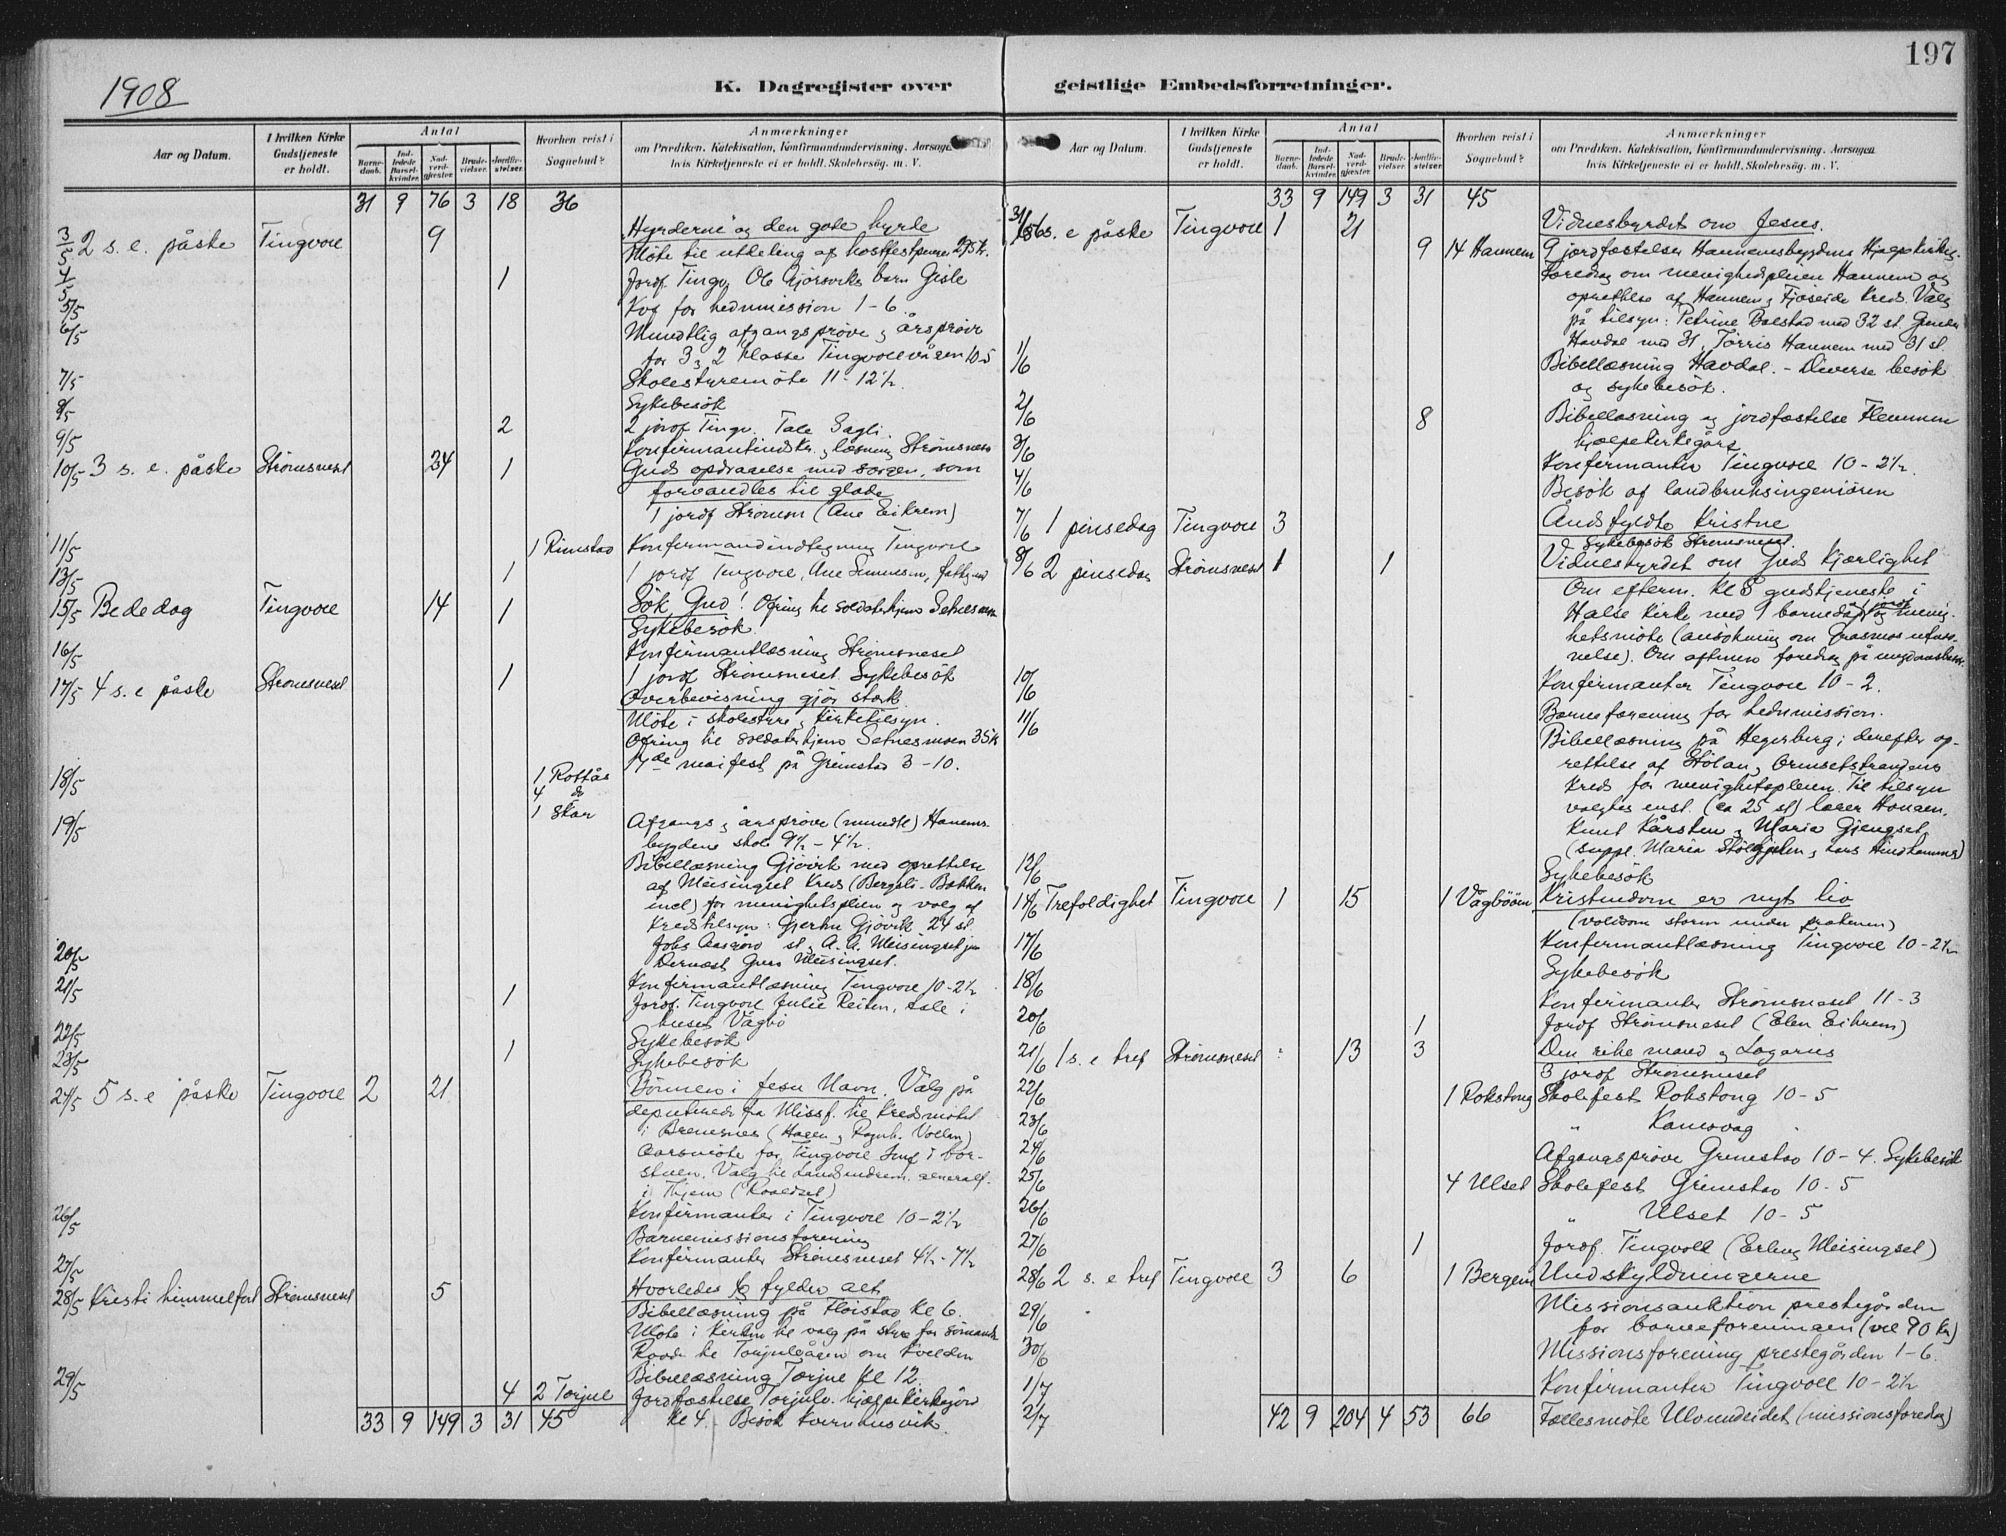 197
1908
K. Dagregister over geistlige Embedsforretninger.
Aar og Datum.
I hvilken Kirke Gudstjeneste er holdt.
Antal
Barne-daab.
Ind-ledede Barsel-kvinder.
Nad-verd-gjæster.
Brude-vielser.
Jordfæ-stelser.
Hvorhen reist i Sognebud?
Anmærkninger
om Prædiken, Katekisation, Konfirmandundervisning, Aarsagen
hvis Kirketjeneste ei er holdt. Skolebesøg. m. V.
31 9 76 3 18 36
3/5 2 s. e. påske Tingvoll 9 Hyrderne og den gode hyrde
Møte til utdeling af høstfestpenge
4/5 1 Jordf. Tingv. barn Gisle
5/5 Kvf for hedmission 1-6.
6/5 Mundtlig afgangsprøve og årsprøve
for 3 og 2 klasse Tingvollvågen 10-5
7/5 Skolestyremöte 11-12½.
8/5 Sykebesök
9/5 2 2 jordf Tingv. Tale
Konfirmantindskr. og læsning Strömsnes
10/5 3 s. e. påske Strömsneset 24 1 Guds opdragelse med sorgen, som
forvandles til glæde
1 jordf Strömsn (Ane Eikrem)
11/5 1 Rimstad Konfirmandindtegning Tingvoll
13/5 1 1 jordf Tingvoll, Ane
15/5 Bededag Tingvoll 14 1 Sök Gud! Ofring til soldaterhjem Setnesmoen
Sykebesök.
16/5 Konfirmantlæsning Strömsneset
17/5 4 s. e påske Strömsneset 1 1 jordf Strömsneset. Sykebesök
Overbevisning gjör sterk.
Möte i skolestyre og kirketilsyn.
Ofring til soldaterhjem Setnesmoen 35 k
17de maifest på Grimstad 3-10.
18/5 1 Rottås
4 do
1 Skar
19/5 Afgangs og årsprøve (mundtl) Hanems-
bygdens skole 9½-4½.
Bibellæsning Gjövik med oprettelse
af Meisingset Kreds (Bergeli-Bakken
incl) for menighetspleien og valg af
kredstilsyn: Gjøvik 24 st.
A. A. Meisingset jr
Dernæst Meisingset.
20/5
21/5 1 Konfirmantlæsning Tingvoll 10-2½
Jordf. Tingvoll Julie Reiten, tale i
huset Vågbö
22/5 Sykebesök
23/5 1 Sykebesök
24/5 5 s. e påske Tingvoll 2 21 Bönnen i Jesu Navn. Valg på
deputerede fra Missf. til kredsmötet
i (Hagen og Ragnh. Vollan)
Aarsmöte for Tingvoll i bor-
stuen. Valg til generalf.
i Hjem (Roaldset)
26/5 Konfirmanter i Tingvoll 10-2½
Barnemissionsforening
27/5 Konfirmanter Strömsneset 4½-7½
28/5 Kristi himmelfart Strömsneset 5 Hvorledes fylder alt
Bibellæsning på Flöistad kl 6.
Möte i kirken til valg på styre for
til Torjulvågen om kvelden
29/5 Bibellæsning Torjul kl 12.
4 2 Torjul Jordfæstelse Torjulv. hjælpekirkegård
33 9 149 3 31 45 kl 4. Besök
Aar og Datum.
I hvilken Kirke Gudstjeneste er holdt.
Antal
Barne-daab.
Ind-ledede Barsel-kvinder.
Nad-verd-gjæster.
Brude-vielser.
Jordfæ-stelser.
Hvorhen reist i Sognebud?
Anmærkninger
om Prædiken, Katekisation, Konfirmandundervisning, Aarsagen
hvis Kirketjeneste ei er holdt. Skolebesøg. m. V.
33 9 149 3 31 45
31/5 6 s. e påske Tingvoll 1 21 Vidnesbyrdet om Jesus.
9 14 Hannem 9 jordfæstelser Hannemsbygdens Hjelpekirkeg.
Foredrag om menighedspleien Hannem og
oprettelse af Hannem og Fjöseide Kreds. Valg
på tilsyn: Petrine Bolstad med 32 st.
Havdal med 31, Torris Hannem med 31 st.
1/6 Bibellæsning Havdal. - Diverse besök
og sykebesök.
2/6 8 Bibellæsning og jordfæstelse Flemmen
hjælpekirkegård
3/6 Konfirmanter Tingvoll 10-2½.
4/6 Besök af landbruksingeniören
7/6 1 pinsedag Tingvoll 3 Åndsfyldte Kristne
Sykebesök Strömsneset.
8/6 2 pinsedag Strömsneset 1 1 Vidnesbyrdet om Guds kjærlighet
Om efterm. kl 8 gudstjeneste i
Halse kirke med 1 barnedåp og menig-
hetsmöte (ansökning om
nelse). Om aftenen foredrag på
10/6 Konfirmanter Tingvoll 10-2.
Barneforening for hedmission.
11/6 Bibellæsning på Hegerberg; derefter op-
rettelse af Hölan og Ormsetstrandens
kreds for menighetspleien. Til tilsyn
valgtes enst. (ca 25 st) lærer Hangen,
Knut Kårsten og Maria Gjengset,
(suppl. Maria og Lars)
12/6 Sykebesök
14/6 Trefoldighet Tingvoll 1 15 1 Vågböen Kristendom er nyt liv
(voldsom storm under prækenen)
17/6 Konfirmantlæsning Tingvoll 10-2½
18/6 Sykebesök
Konfirmanter Strömsneset 11-3
20/6 1 Jordf Strömsneset (Elen Eikrem)
21/6 1 s. e tref Strömsneset 13 3 Den rike mand og Lazarus
3 jordf Strömsneset
22/6 1 Rokstong Skolefest Rokstong 10-5
23/6 " Kamsvag "
24/6 Afgangsprøve Grimstad 10-4. Sykebesök
25/6 4 Ulset Skolefest Grimstad 10-5
26/6 " Ulset 10-5
27/6 1 Jordf. Tingvoll (Erling Meisingset)
28/6 2 s. e tref Tingvoll 3 6 1 Bergem Undskyldningerne
29/6 Missionsauktion prestegården
for barneforeningen (vel 90 kr)
30/6 Missionsforening prestegården 1-6.
1/7 Konfirmanter Tingvoll 10-2½
2/7 42 9 204 4 53 66 Fællesmöte Ulvundeidet (missionsforedrag)